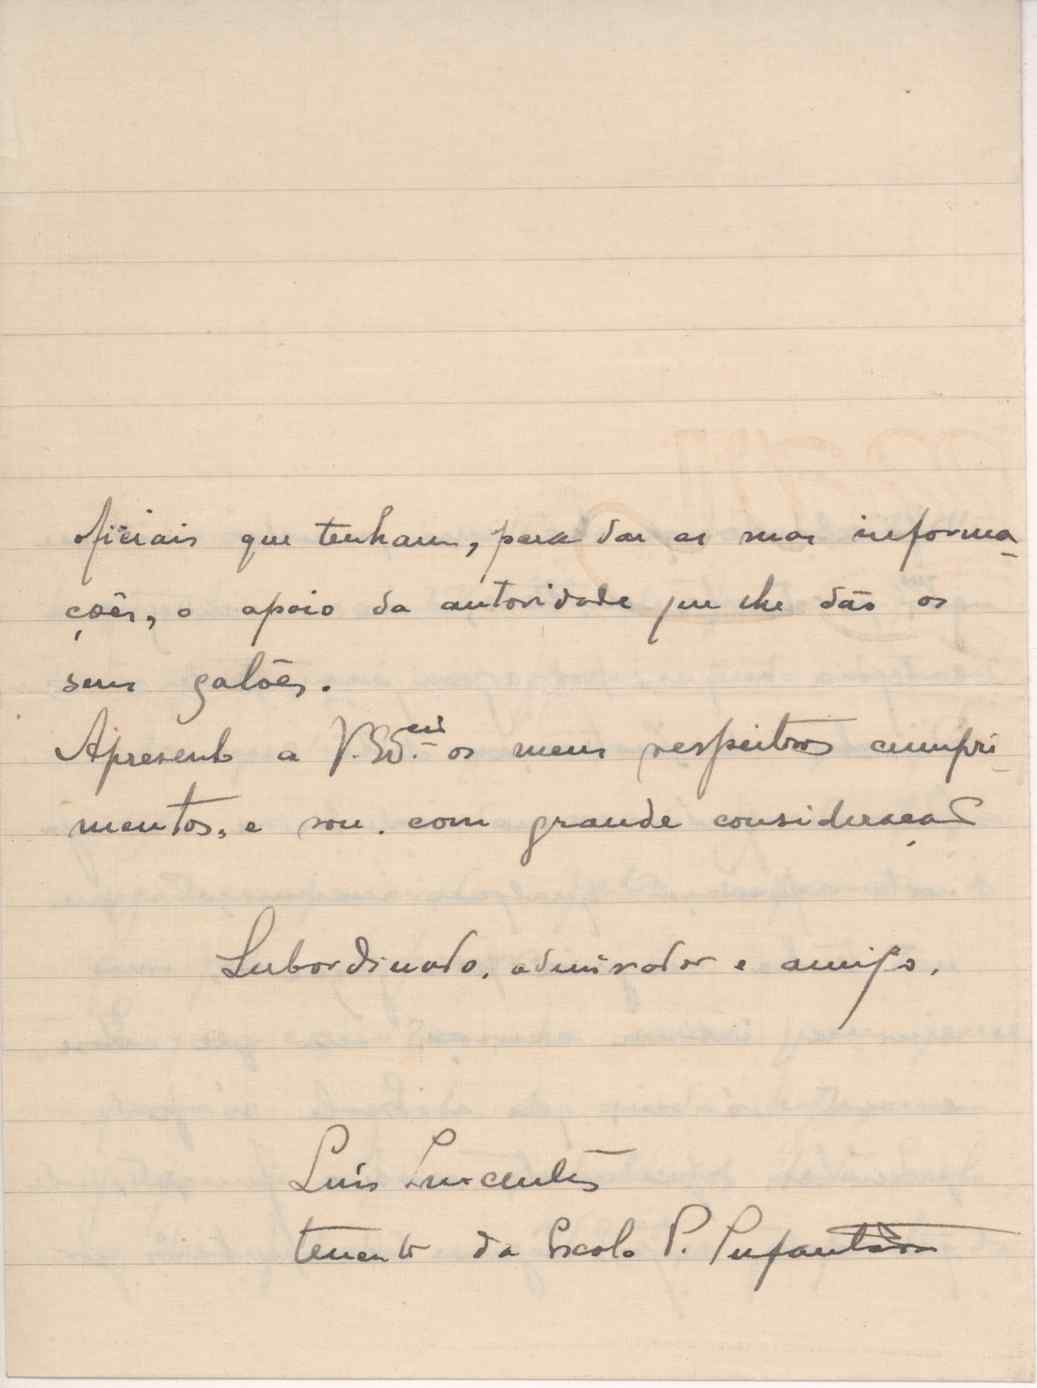 oficiais que tenham, para dar as suas informa-
ções, o apoio da autoridade que lhe dão os
seus galões.
Apresento a V. Ex.cia os meus respeitosos cumpri-
mentos, e sou. com grande consideração
Subordinado, admirador e amigo,
Luís
tenente da Escola P. Infantaria